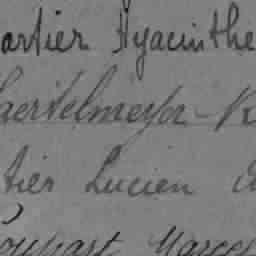 artier Hyacinthe
aertelmeyer - K
tier Lucien
oupart Marcel